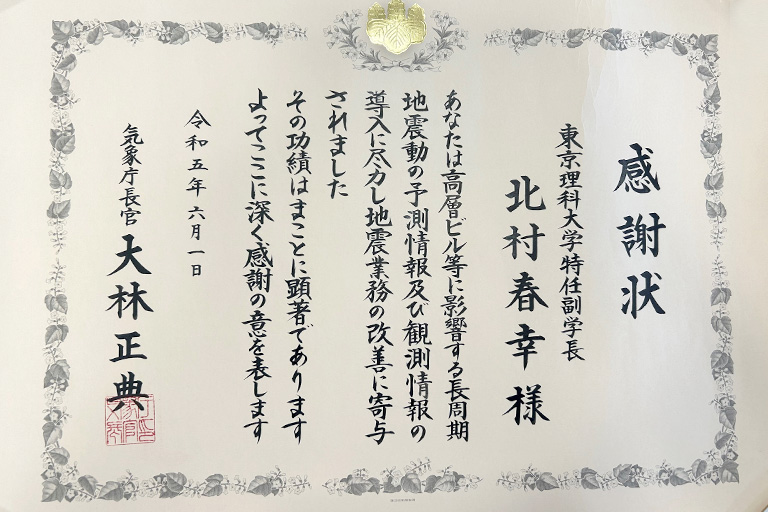 感謝状
東京理科大学特任副学長
北村春幸様
あなたは高層ビル等に影響する長周期
地震動の予測情報及び観測情報の
導入に尽力し地震業務の改善に寄与
されました
その功績はまことに顕著であります
よってここに深く感謝の意を表します
令和五年六月一日
気象庁長官 大林正典